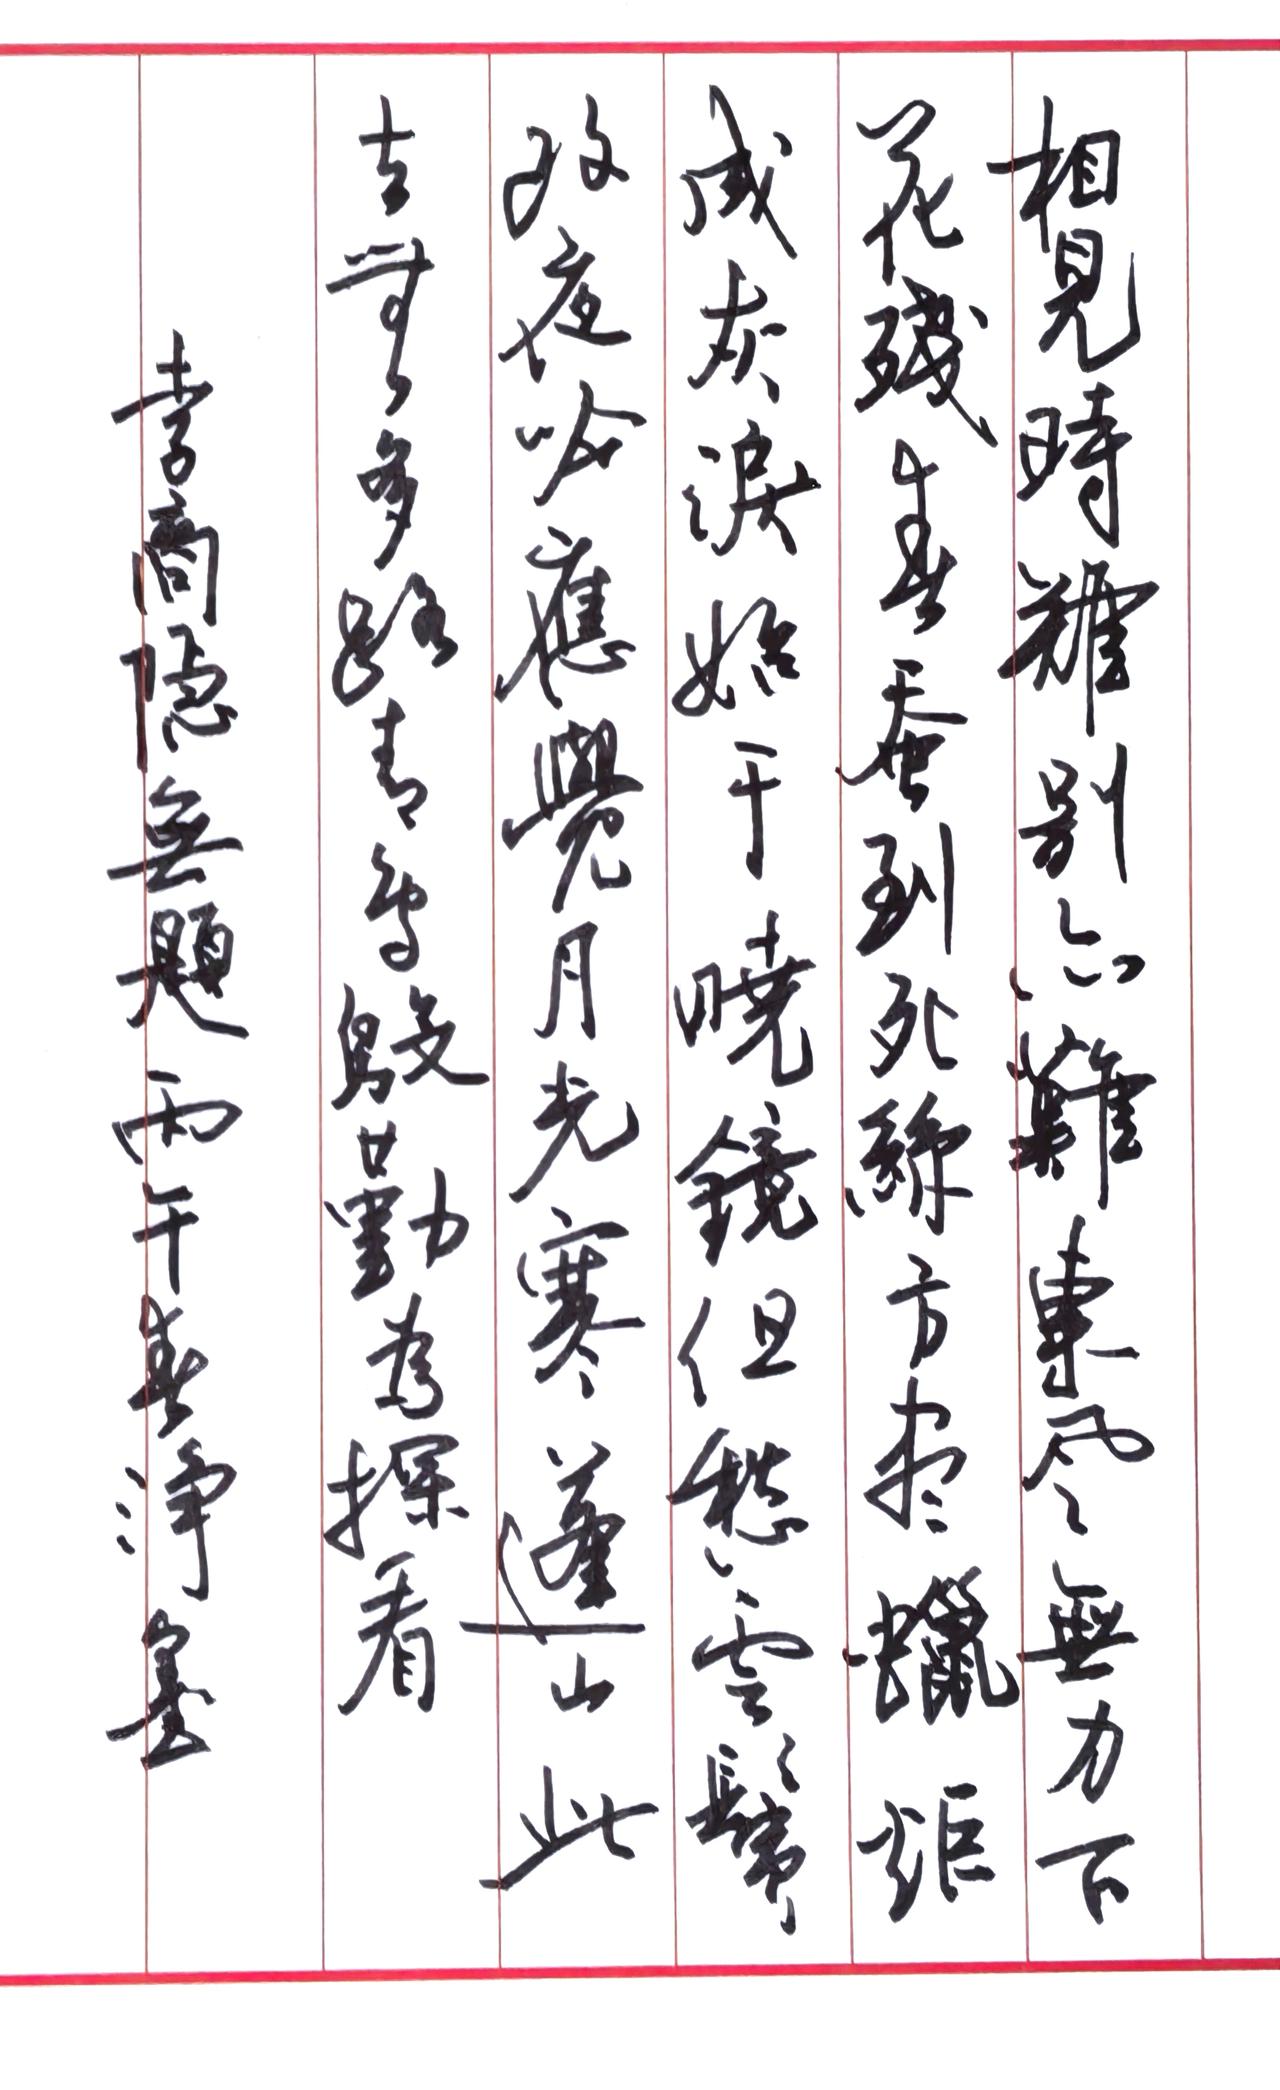 相見時難別亦難東风無力百
花殘春蚕到死絲方尽蠟炬
成灰淚始干曉鏡但愁雲鬢
改夜吟應覺月光寒蓬山此
去無多路青鳥殷勤為探看
李商隐無題丙午春净